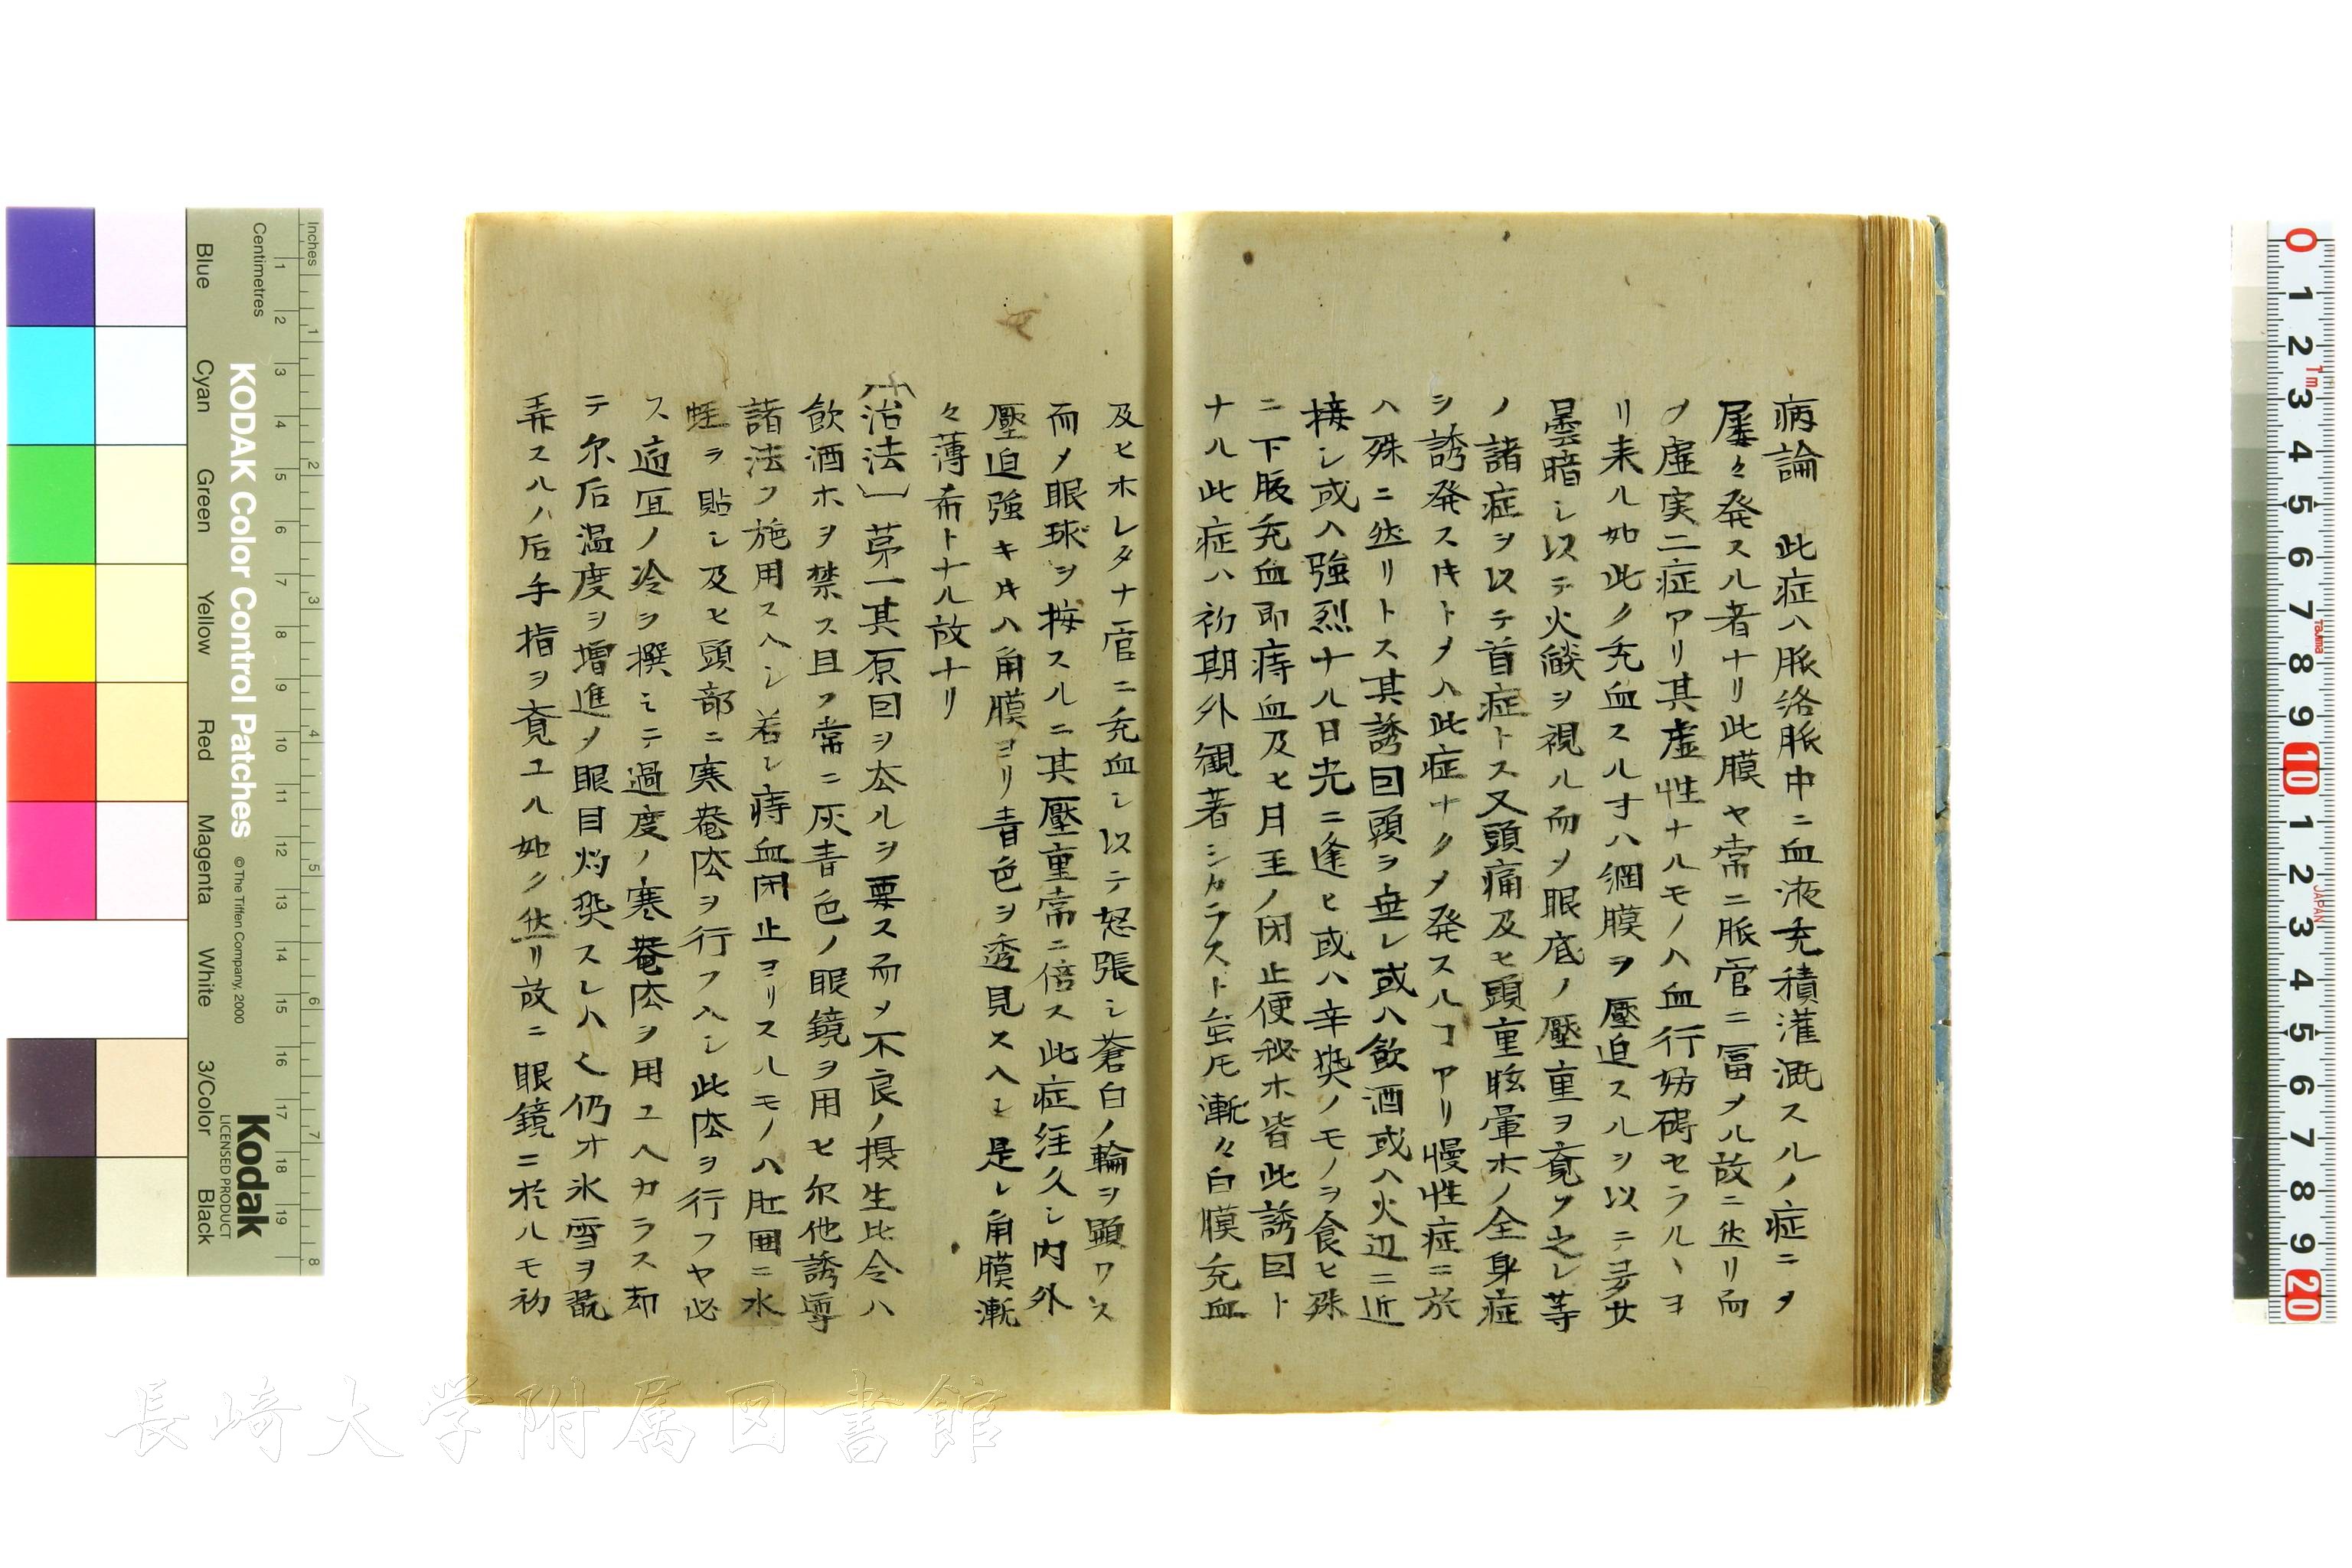 病論　此症ハ脈絡脈中ニ血液充積灌漑スルノ症ニ〆
屡々発スル者ナリ此膜ヤ常ニ脈管ニ冨メル故ニ然リ而
〆虚実二症アリ其虚性ナルモノハ血行妨碍セラルヽヨ
リ来ル如此ク充血スルオハ網膜ヲ壓迫スルヲ以テ
曇暗シ以テ火燄ヲ視ル而〆眼底ノ壓重ヲ覚フ之レ等
ノ諸症ヲ以テ首症トス又頭痛及ヒ頭重眩暈ホノ全身症
ヲ誘発スルキトメハ此症ナク〆発スルヿアリ慢性症ニ於
ハ殊ニ然リトス其誘因頭ヲ垂レ或ハ飲酒或ハ火辺ニ近
接シ或ハ強烈ナル日光ニ逢ヒ或ハ辛燠ノモノヲ食ヒ殊
ニ下腹充血即痔血及ヒ月圣ノ閉止便秘ホ皆此誘因ト
ナル此症ハ初期外観著シカラスト虽𪜈漸々白膜充血
及ヒホレタナ管ニ充血シ以テ怒張シ蒼白ノ輪ヲ顕ワス
而〆眼球ヲ按スルニ其壓重常ニ倍ス此症経久シ内外
壓迫強キ𪜈ハ角膜ヨリ青色ヲ透見スヘシ是レ角膜漸
々薄希トナル故ナリ
〔治法〕第一其原因ヲ厺ルヲ要ス而〆不良ノ摂生比令ハ
飲酒ホヲ禁ス且ツ常ニ灰青色ノ眼鏡ヲ用ヒ尓他誘導
諸法ヲ施用スヘシ若シ痔血閉止ヨリスルモノハ肛囲ニ水
蛭ヲ貼シ及ヒ頭部ニ寒菴法ヲ行フヘシ此法ヲ行フヤ必
ス適宜ノ冷ヲ撰ミテ過度ノ寒菴法ヲ用ユヘカラス却
テ尓后温度ヲ増進〆眼目灼焮スレハ也仍才氷雪ヲ翫
弄スルノ后手指ヲ覚ユル如ク然リ故ニ眼鏡ニ於ルモ初
Inches
Centimetres
KODAK Color Control Patches
© The Tiffen Company, 2000
Kodak
LICENSED PRODUCT
Blue
Cyan
Green
Yellow
Red
Magenta
White
3/Color
Black
長崎大学附属図書館